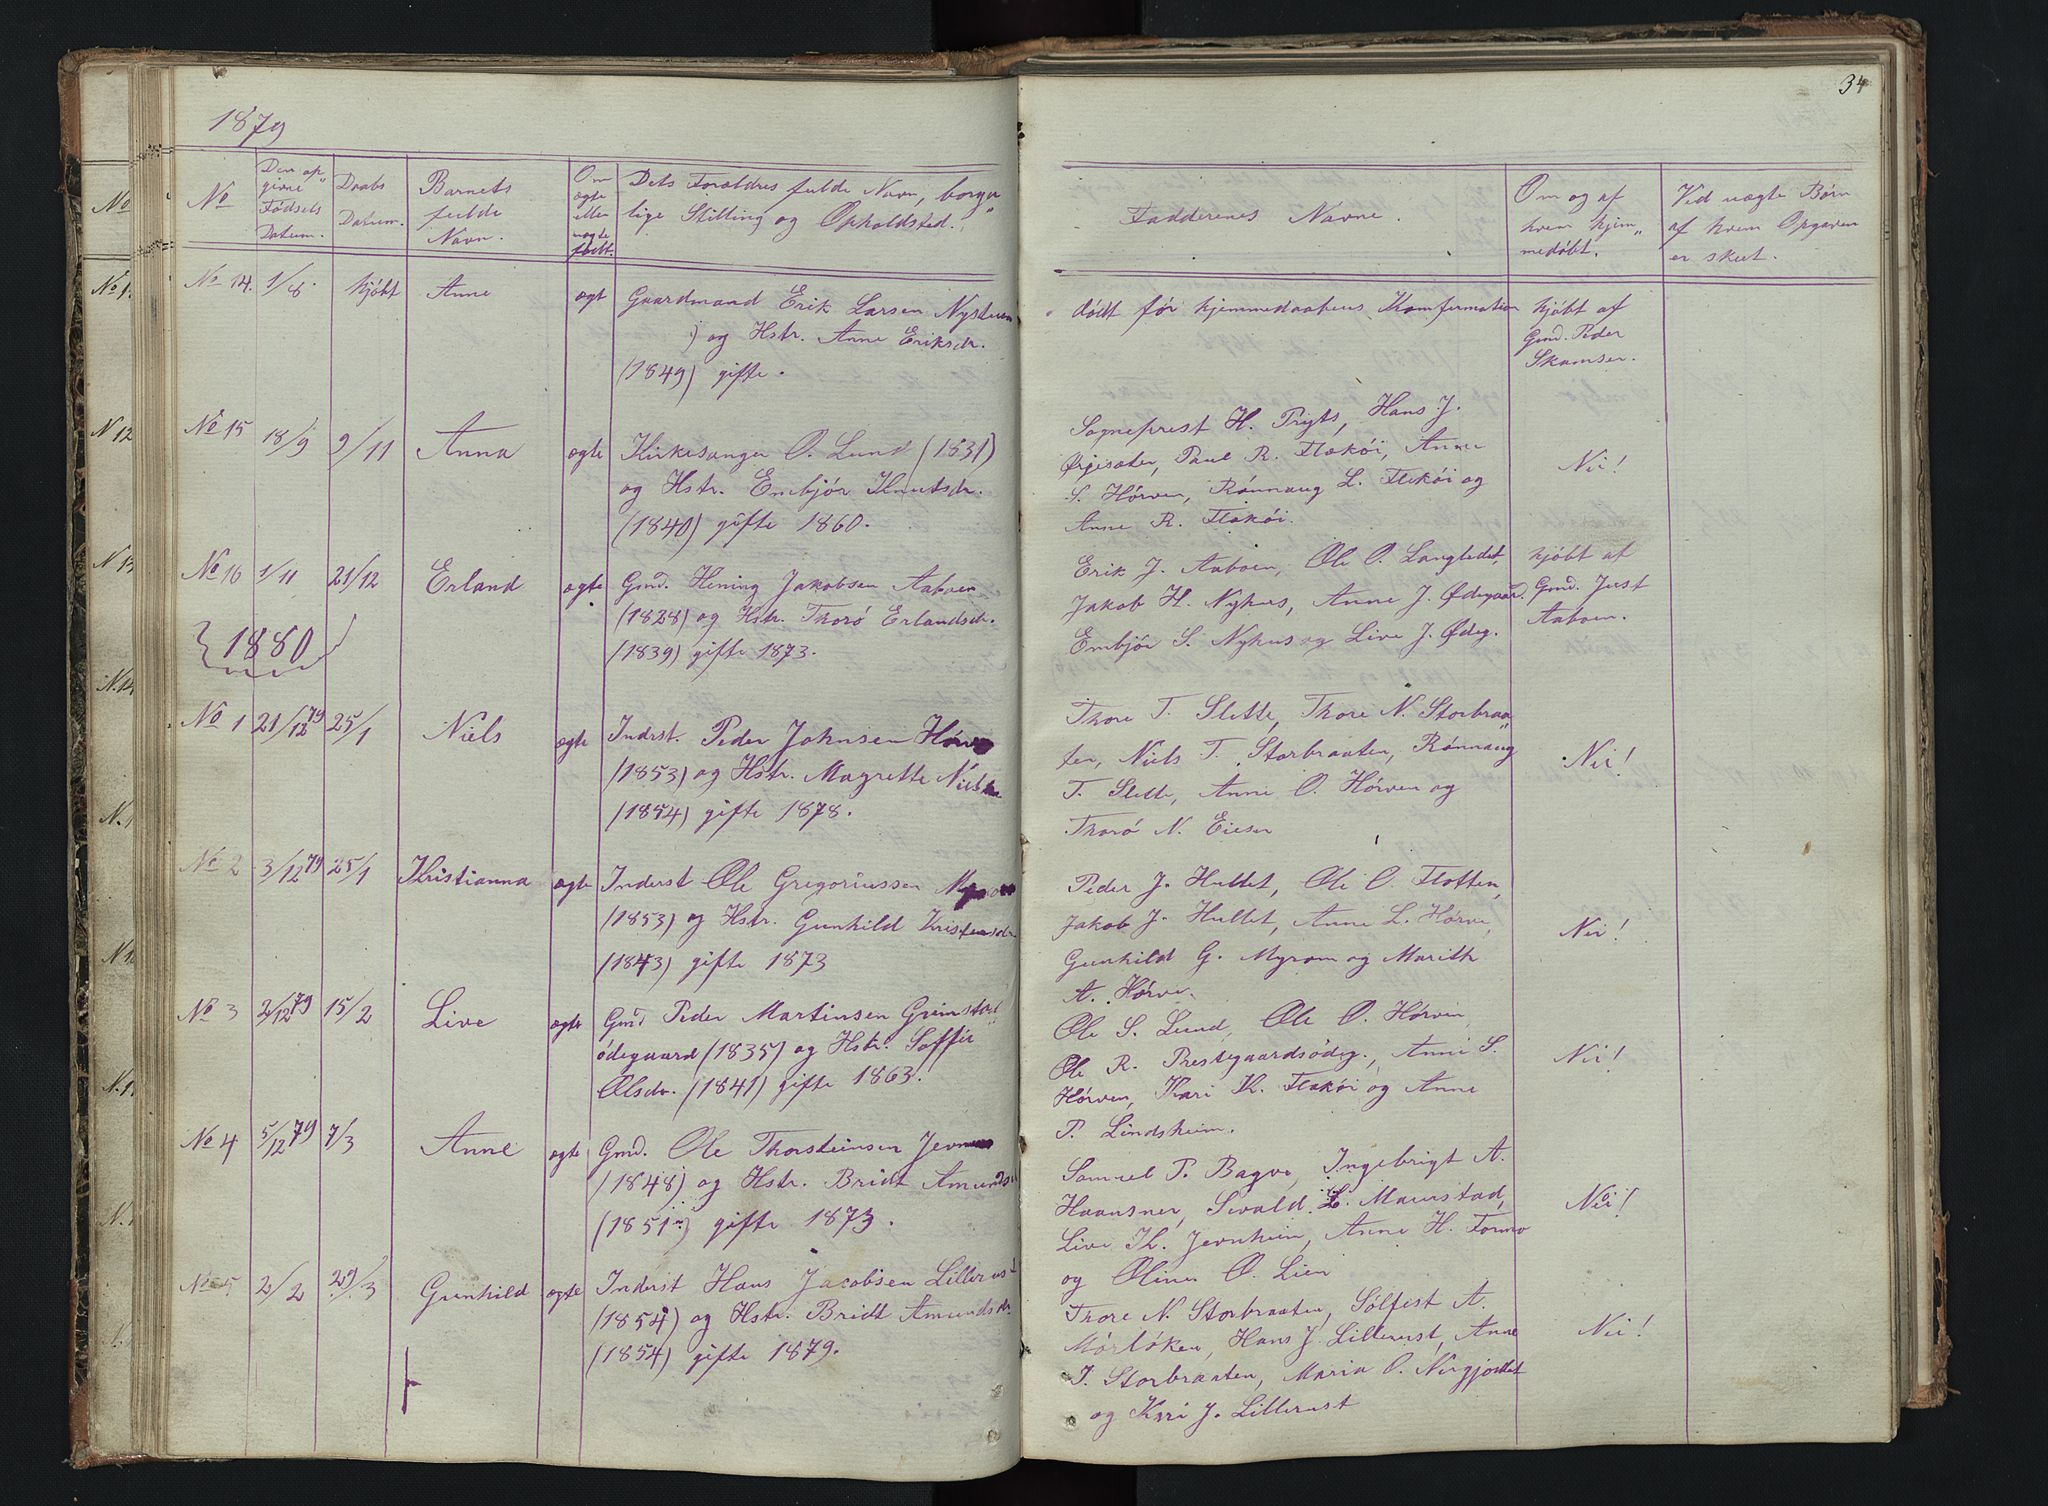 1879
34
No
Den op„
givne
Fødsels
Datum.
Daabs
Datum.
Barnets
fulde
Navn.
Om
ægte
eller
uægte
født.
Dets Forældres fulde Navn, borger„
lige Stilling og Opholdsted.
Fadderenes Navne.
Om og af
hvem hjem„
medøbt.
Ved uægte Børn
af hvem Opgaven
er skeet.
No 14. 1/8. hjdøbt Anne ægt
Gaardmand Erik Larsen
og Hstr. Anne Eriksdr.
(1849) gifte.
dødt før hjemmedaabens Konfermation
hjdøbt af
Gmd. Peder
Skamser.
No 15 18/9 9/11 Anna ægte
Kirkesanger O. Lund (1831)
og Hstr. Embjør Knutsdr.
(1840) gifte 1860.
Sogneprest H. Prÿts, Hans J.
Paul R. Flækøi, Anne
S. Hørven, Rønnaug L. Flekøi og
Anne R. Flækøi.
Nei!
No 16 1/11 21/12 Erland ægte
Gmd. Hening Jakobsen Aaboen
(1828) og Hstr. Thorø Erlandsdr.
(1839) gifte 1873.
Erik J. Aaboen, Ole O. Langledet,
Jakob H. Nyhus, Anne J. Ødegaard.
Embjør S. Nyhus og Live J. Ødeg.
hjdøbt af
Gmd. Just
Aaboen.
1880
No 1 21/12 79 25/1 Niels ægte
Indrst. Peder Johnsen
(1853) og Hstr. Magrette Niels
(1854) gifte 1878.
Thore T. Slette, Thore N. Storbraa„
ten, Niels T. Storbraaten, Rønnaug
T. Slette, Anne O. Hørven og
Thorø N. Eieser
Nei!
No 2 3/12 79 25/1 Kristianna ægte
Inderst Ole Gregoriussen
(1853) og Hstr. Gunhild Kristensdr.
(1843) gifte 1873
Peder J. Hullet, Ole O. Flotten,
Jakob J. Hullet, Anne L. Hørve,
Gunhild G. Myrom og Marith
A. Hørve.
Nei!
No 3 2/12 79 15/2 Live ægte
Gmd Peder Martinsen Grimstad
ødegaard (1835) og Hstr. Soffie
Olsdr. (1841) gifte 1863.
Ole S. Lund, Ole O. Hørven,
Ole R. Prestegaardsødeg., Anne S.
Hørven, Kari K. Flækøi og Anne
P. Lindsheim.
Nei!
No 4 5/12 79 7/3 Anne ægte
Gmd. Ole Thorsteinsen
(1848) og Hstr. Bridt Amunds
(1851) gifte 1873.
Samuel P. Bagve, Ingebrigt A.
Haansner, Sivald L. Maurstad,
Live K. Jevnheim, Anne H. Formo
og Oline O. Lien
Nei!
No 5 2/2 29/3 Gunhild ægte
Inderst Hans Jacobsen Lillerust
(1854) og Hstr. Bridt Amundsdr.
(1854) gifte 1879.
Thore N. Storbraaten, Sølfest A.
Mørløken, Hans J. Lillerust, Anne
T. Storbraaten, Maria O. Nergjordet
og Kari J. Lillerust
Nei!